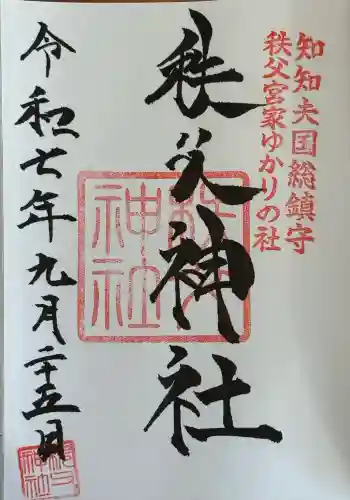 知知夫国総鎮守
秩父宮家ゆかりの社
秩父神社
秩父神社
令和七年九月二十五日
秩父神社